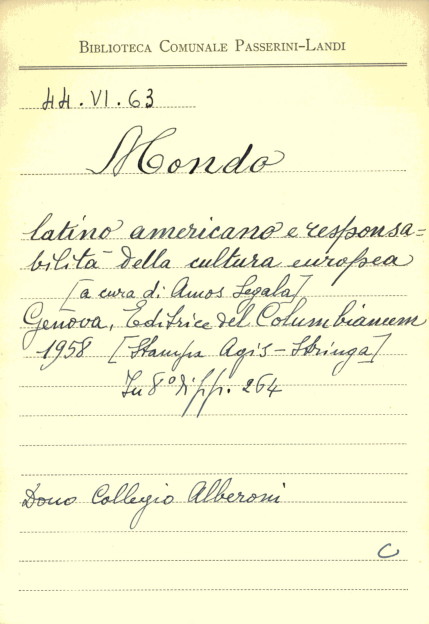 BIBLIOTECA COMUNALE PASSERINI-LANDI
44.VI.63
Mondo
latino americano e responsa=
bilità della cultura europea
[a cura di Amos Segala]
Genova, Editrice del Columbianum
1958 [Stampa Agis-Stringa]
In 8° di pp. 264
Dono Collegio Alberoni
C